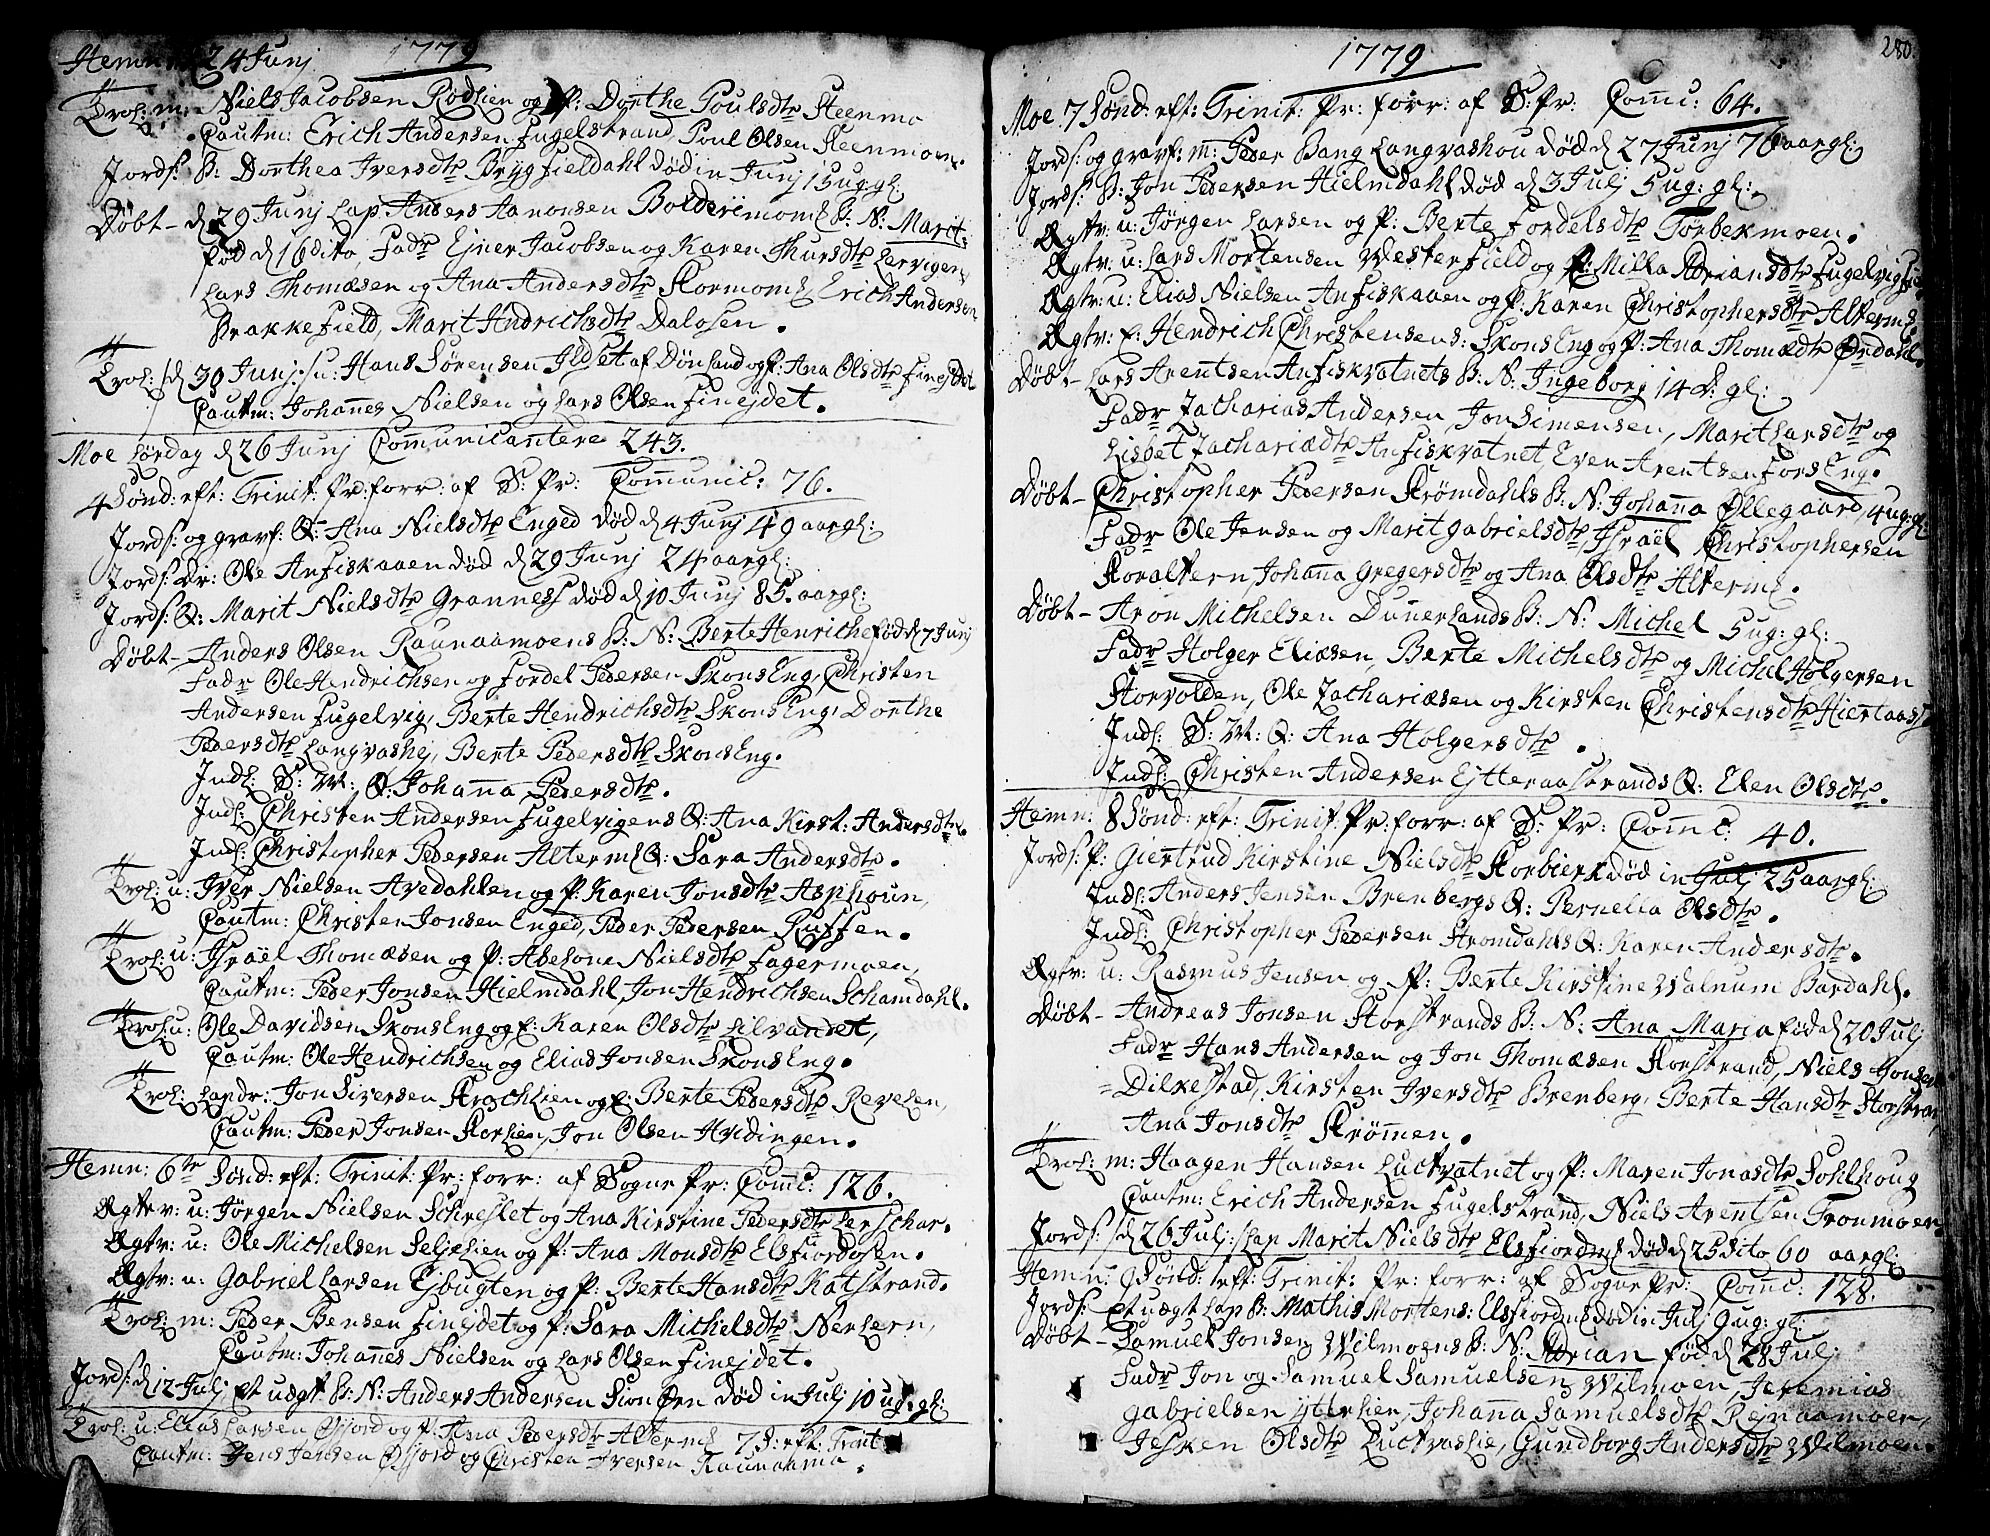 1779
Hemn: d 24 Junj
Trol: m: Niels Jacobsen Rødlien og P: Dorthe Poulsdtr Steenmo
Cautm: Erich Andersen Fugelstrand, Poul Olsen Steenmoen.
Jords: B: Dorthea Iversdtr Brygfieldahl død in Junj 1 ug: gl:
Døbt - d 29 Junj Lap Anders Aronsen Bolderimoms B: N: Marit
fød d 16 dito, Fadr Ejner Jacobsen og Karen Thursdtr Lervigen,
Lars Thomæsen og Ana Andersdtr Kormoms, Erich Andersen
Brakkefield, Marit Hndrichsdtr Dalosen.
Trol: d 30 Junj: u: Hans Sørensen Ildset af Dønland og P: Ana Olsdtr Finejdet
Cautm: Johannes Nielsen og Lars Olsen Finejdet.
Moe Lørdag d 26 Junj Comunicantere 243.
4 Sønd: eft: Trinit: Pr: forr: af S: Pr: Communic: 76.
Jords: og gravf: Q: Ana Nielsdtr Enged død d 4 Junj 49 aar gl:
Jords: Dr: Ole Anfiskaaen død d 29 Junj 24 aar gl:
Jords: Q: Marit Nielsdtr Grannes død d 10 Junj 85. aar gl:
Døbt - Anders Olsen Raunaamoens B: N: Berte Henriche fød d 7 Junj
Fadr Ole Hendrichsen og Fordel Pedersen Skons Eng, Christen
Andersen Fugelvig, Berte Hendrichsdtr Skons Eng, Dorthe
Pedersdtr Langvashej, Berte Pedersdtr Skons Eng.
Indl: S: W: Q: Johanna Pedersdtr.
Indl: Christen Andersen Fugelvigens Q: Ana Kirst: Andersdtr.
Indl: Christopher Pedersen Alterms Q: Sara Andersdtr.
Trol: u: Iver Nielsen Avedahlen og P: Karen Jonsdtr Asphoun,
Cautm: Christen Jonsen Enged, Peder Pedersen Ruffen.
Trol: u: Israël Thomæsen og P: Abelone Nielsdtr Fagermoen,
Cautm: Peder Jonsen Hielmdahl, Jon Hendrichsen Schamdahl.
Trol: u: Ole Davidsen Skons Eng og E: Karen Olsdtr Silvandet,
Cautm: Ole Hendrichsen og Elias Jonsen Skons Eng.
Trol: Landr: Jon Siversen Krochlien og E: Berte Pedersdtr Revelen,
Cautm: Peder Jonsen Storlien, Jon Olsen Hvidingen.
Hemn: 6te Sønd: eft: Trinit: Pr: forr: af Sogne Pr: Comc: 126.
Ægtv: u: Jørgen Nielsen Schreslet og Ana Kirstine Pedersdtr Lerschar.
Ægtv: u: Ole Michelsen Seljelien og P: Ana Monsdtr Elsfiordosen.
Ægtv: u: Gabriel Larsen Ejbugten og P: Berte Hansdtr Ratstrand.
Trol: m: Peder Bensen Finejdet og P: Sara Michelsdtr Nerlern,
Cautm: Johannes Nielsen og Lars Olsen Finejdet.
Jords: d 12 Julj et uægt B: N: Anders Andersen Sion Ørn død in Julj 10 ug: gl:
Trol: u: Elias Larsen Øffjord og P: Ana Pedersdtr Alterms 7 S: eft: Trinit
Cautm: Jens Jensen Øffjord og Christen Iversen Raunaamo.
280
1779
Moe 7 Sønd: eft: Trinit: Pr: forr: af S: Pr: Comc: 64.
Jords: og gravf: m: Peder Bang Langvashou død d 27 Junj 76 aar gl:
Jords: B: Jon Pedersen Hielmdahl død d 3 Julj 5 ug: gl:
Ægtv: u: Jørgen Larsen og P: Berte Fordelsdtr Torbekmoen.
Ægtv: u: Lars Mortensen Westerfield og P: Milla Adriansdtr Fugelvig
Ægtv: u: Elias Nielsen Anfiskaaen og P: Karen Christophersdtr Alterms.
Ægtv: E: Hendrich Christensens: Skons Eng og P: Ana Thomædtr Ørdahl.
Døbt - Lars Arentsen Anfiskvatnets B: N: Ingeborg 14 d: gl:
Fadr Zacharias Andersen, Jon Simensen, Marit Larsdtr og
Lisbet Zachariædtr Anfiskvatnet, Even Arentsen Fors Eng.
Døbt - Christopher Pedersen Strømdahls B: N: Johanna Øllegaard, 4 ug: gl:
Fadr Ole Jensen og Marit Gabrielsdtr, Israël Christophersen
Storaltern, Johanna Gregersdtr og Ana Olsdtr Alterms.
Døbt - Aron Michelsen Dunerlands B: N: Michel 5 ug: gl:
Fadr Holger Eliæsen, Berte Michelsdtr og Michel Holgersen
Storvolden, Ole Zachariæsen og Kirsten Christensdtr Hiertaas
Indl: S: W: Q: Ana Holgersdtr.
Indl: Christen Andersen Ejtteraastrands Q: Elen Olsdtr.
Hemn: 8 Sønd: eft: Trinit: Pr: forr: af S: Pr: Comc: 40.
Jords: P: Giertrud Kirstine Nielsdtr Storbierk død in Julj 25 aar gl:
Indl: Anders Jensen Brenbergs Q: Pernella Olsdtr.
Indl: Christopher Pedersen Stromdahls Q: Karen Andersdtr.
Ægtv: u: Rasmus Jensen og P: Berte Kirstine Walnum Bardahl.
Døbt - Andreas Jonsen Storstrands B: N: Ana Maria fød d 20 Julj
Fadr Hans Andersen og Jon Thomæsen Storstrand, Niels Jonsen
Dilkestad, Kirsten Iversdtr Brenberg, Berte Hansdtr Storstran,
Ana Jonsdtr Strømmen.
Trol: m: Haagen Hansen Luctvatnet og P: Maren Jonasdtr Sohlhoug
Cautm: Erich Andersen Fugelstrand, Niels Arentsen Tronmoen.
Jords: d 26 Julj: Lap Marit Nielsdtr Elsfiordms død d 25 dito 60 aar gl:
Hemn: 9 Sønd: eft: Trinit: Pr: forr: af Sogne Pr: Comc: 128.
Jords: et uægt Lap B: Mathis Mortens: Elsfiordms død in Julj 9 ug: gl:
Døbt - Samuel Jonsen Wilmoens B: N: Adrian fød d 28 Julj
Fadr Jon og Samuel Samuelsen Wilmoen, Jeremias
Gabrielsen Ytterlien, Johanna Samuelsdtr Rejnaamoen,
Jesken Olsdtr Luctvaslie, Gundborg Andersdtr Wilmoen.